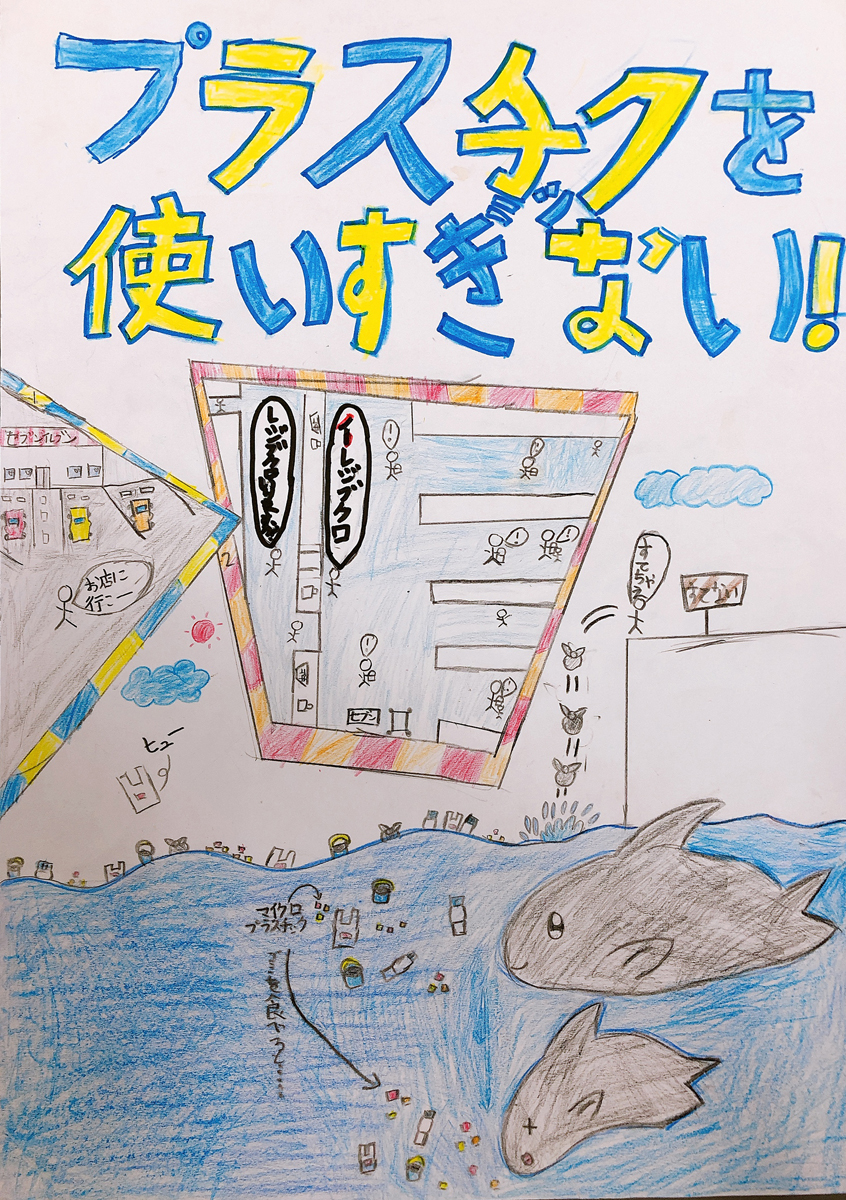 プラスチックを
使いすぎない!
セブンイレブン
1
お店に
行こー
2
レジブクロ
!
!
!
!
!
!
セブン
すてちゃえ
すてない
ヒュー
マイクロ
プラスチック
食べると……